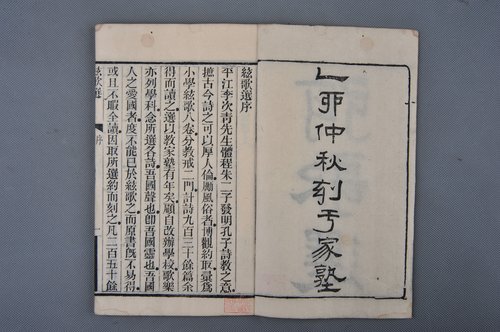 乙丣仲秋刻于家塾
絃歌選序
平江李次青先生體程朱二子發明孔子詩教之意
摭古今詩之可以厚人倫勵風俗者博觀約取彙爲
小學絃歌八卷分教戒二門計詩九百三十餘篇余
得而讀之選以教家塾有年矣顧自改辦學校歌樂
亦列學科念所選各詩吾國聲也卽吾國靈也吾國
人之愛國者度不能已於絃歌之而原書旣不易得
或且不暇全讀因取所選約而刻之凡二百五十餘
絃歌選
序
一